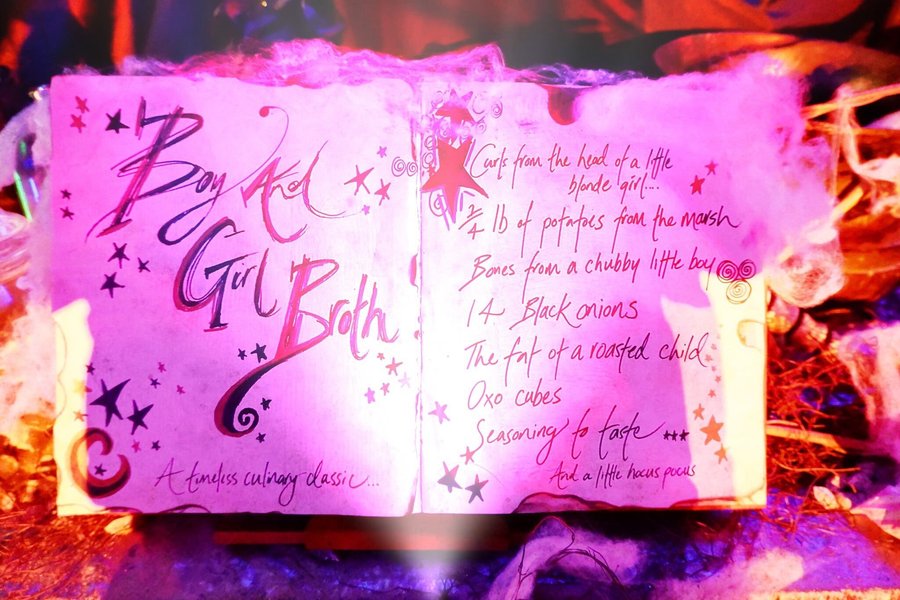 Boy And
Girl
Broth
A timeless culinary classic...
Curls from the head of a little
blonde girl....
2/4 lb of potatoes from the marsh
Bones from a chubby little boy
14 Black onions
The fat of a roasted child
Oxo cubes
Seasoning to taste
And a little hocus pocus